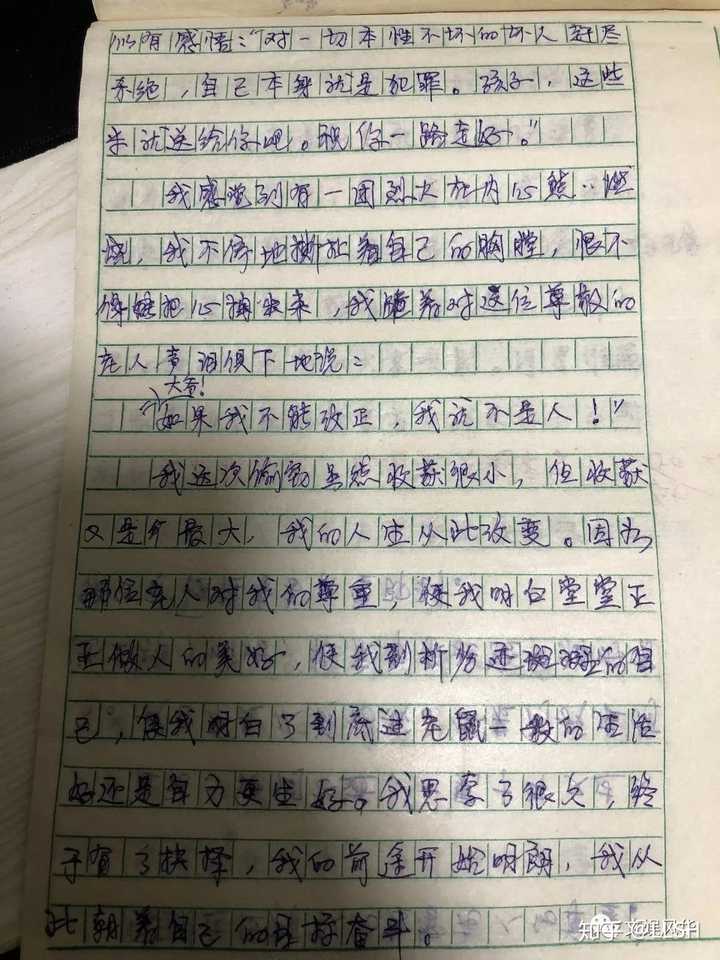 似有感悟："对一切本性不坏的坏人赶尽
杀绝，自己本身就是犯罪。孩子，这些
羊就送给你吧。祝你一路走好。"
我感觉到有一团烈火在内心熊‥燃
烧，我不停地撕扯着自己的胸膛，恨不
得能把心掏出来，我随着对这位尊敬的
老人声泪俱下地说：
大爷！
"如果我不能改正，我就不是人！"
我这次偷窃虽然收获很小，但收获
又是最大，我的人生从此改变。因为
那位老人对我的尊重，使我明白堂堂正
正做人的美好，使我剖析劣迹斑斑的自
己，使我明白了到底过老鼠一般的生活
好还是自力更生好。我思索了很久，终
于有了抉择，我的前途开始明朗，我从
此朝着自己的目标奋斗。
知乎 @文课风华